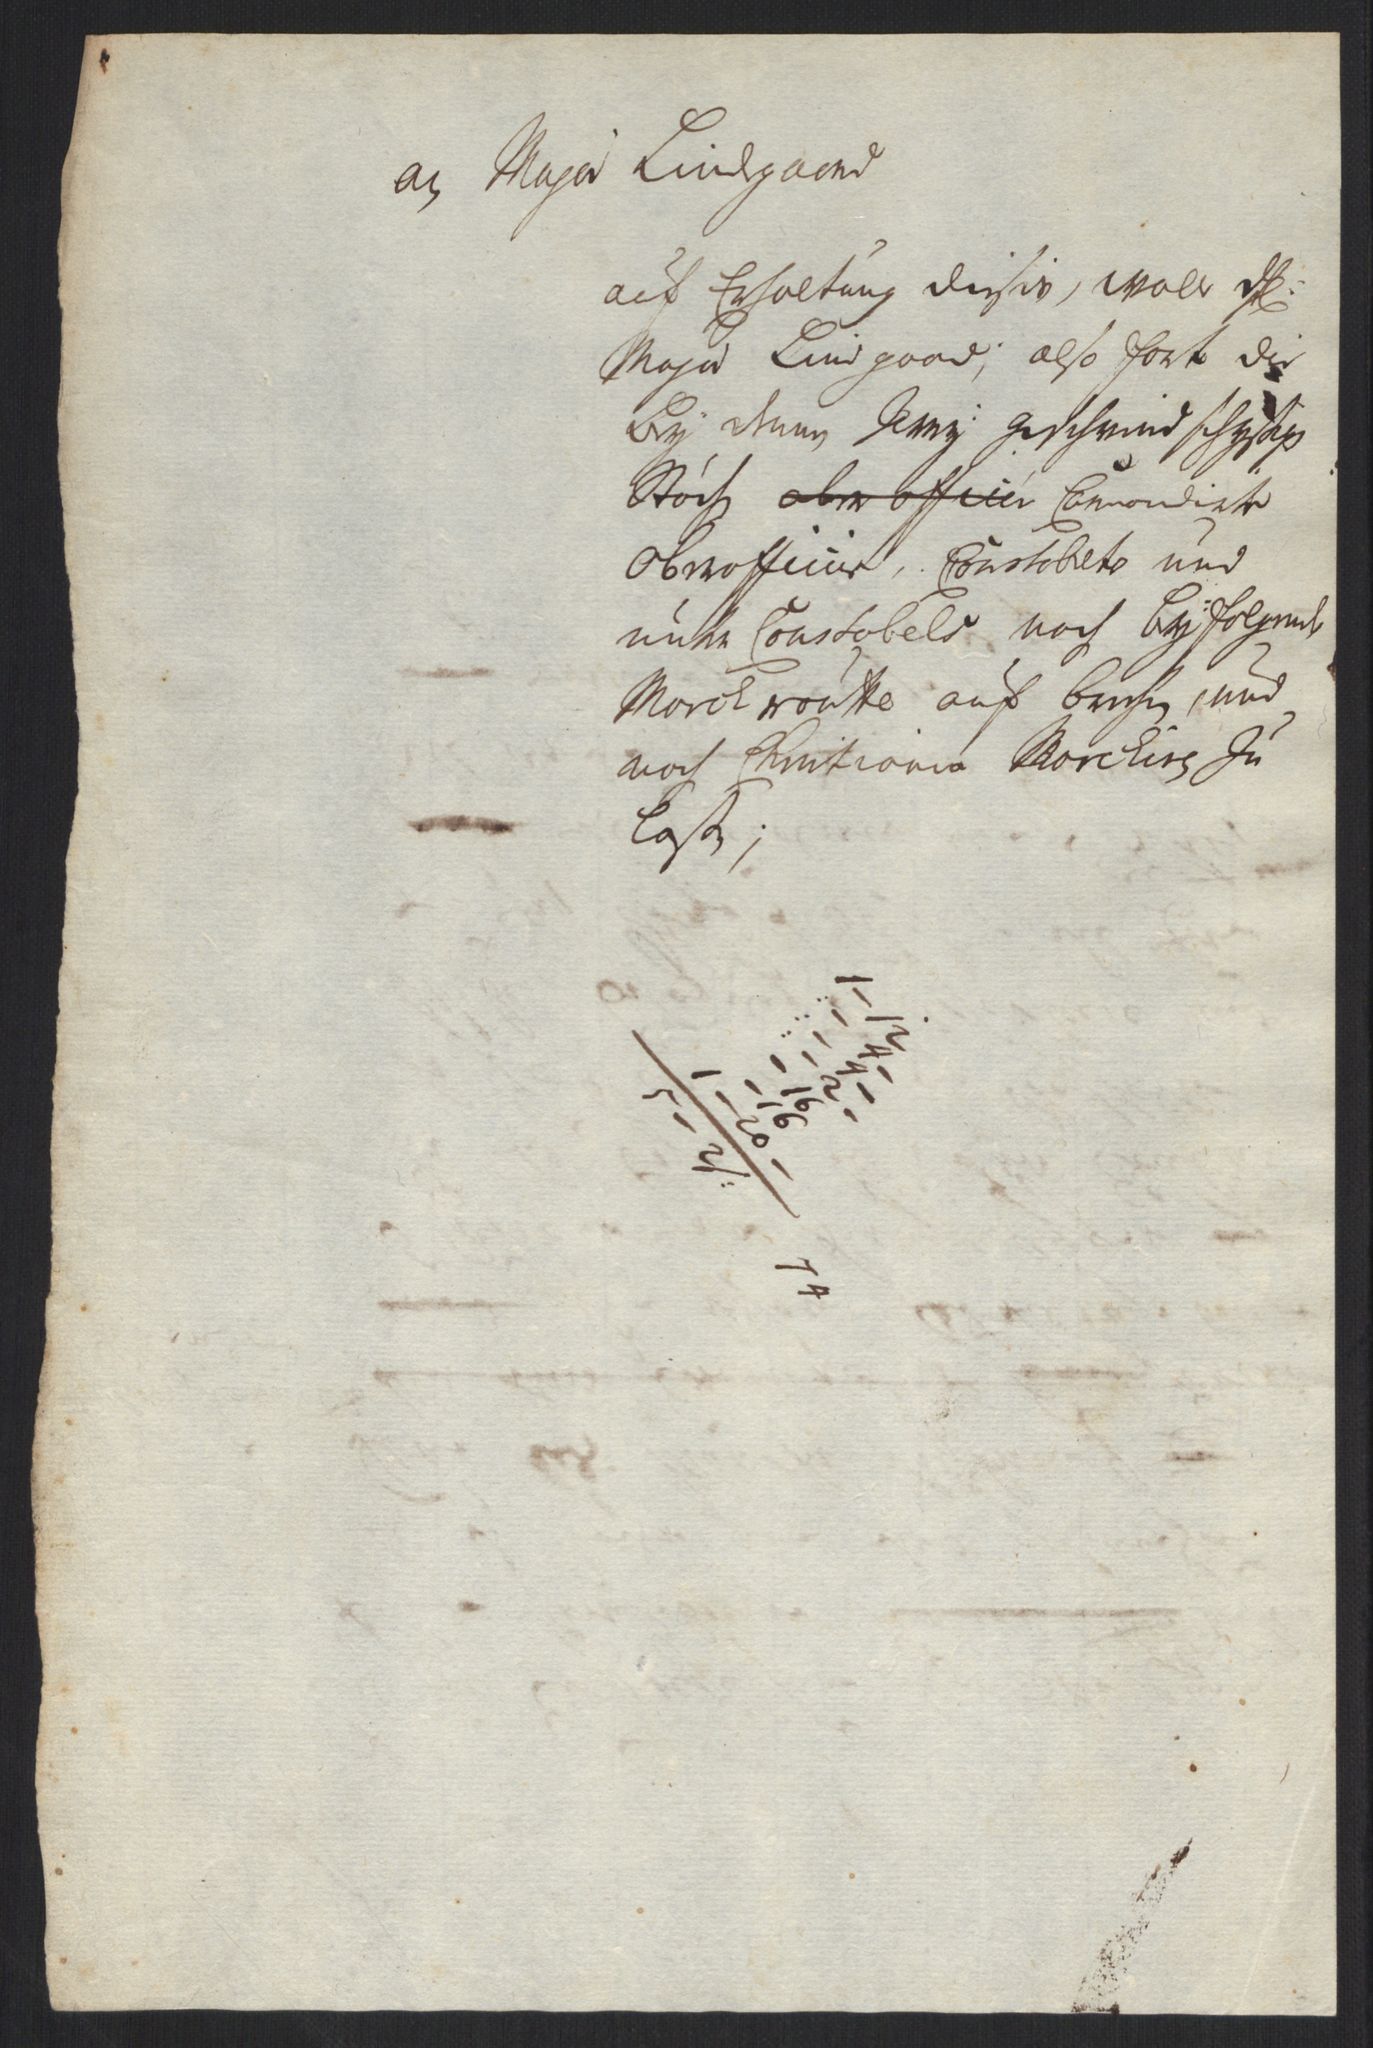 an Major Lindgaard
auf Erhaltung dieses, wolle H:
Major Lindgaard, also fort die
bey denen zwey geschwind schyssen
Stück ober officier Comandirte
Oberofficier, Constabels und
unter Constabels nach beyfolgende
March route auf brechen, und
nach Christiania Marchiren zu
lassen;
1 - 12
- 4 -
- 4 -
- 2 -
- 16
- 16
1 - 20 -
5 - 2
74